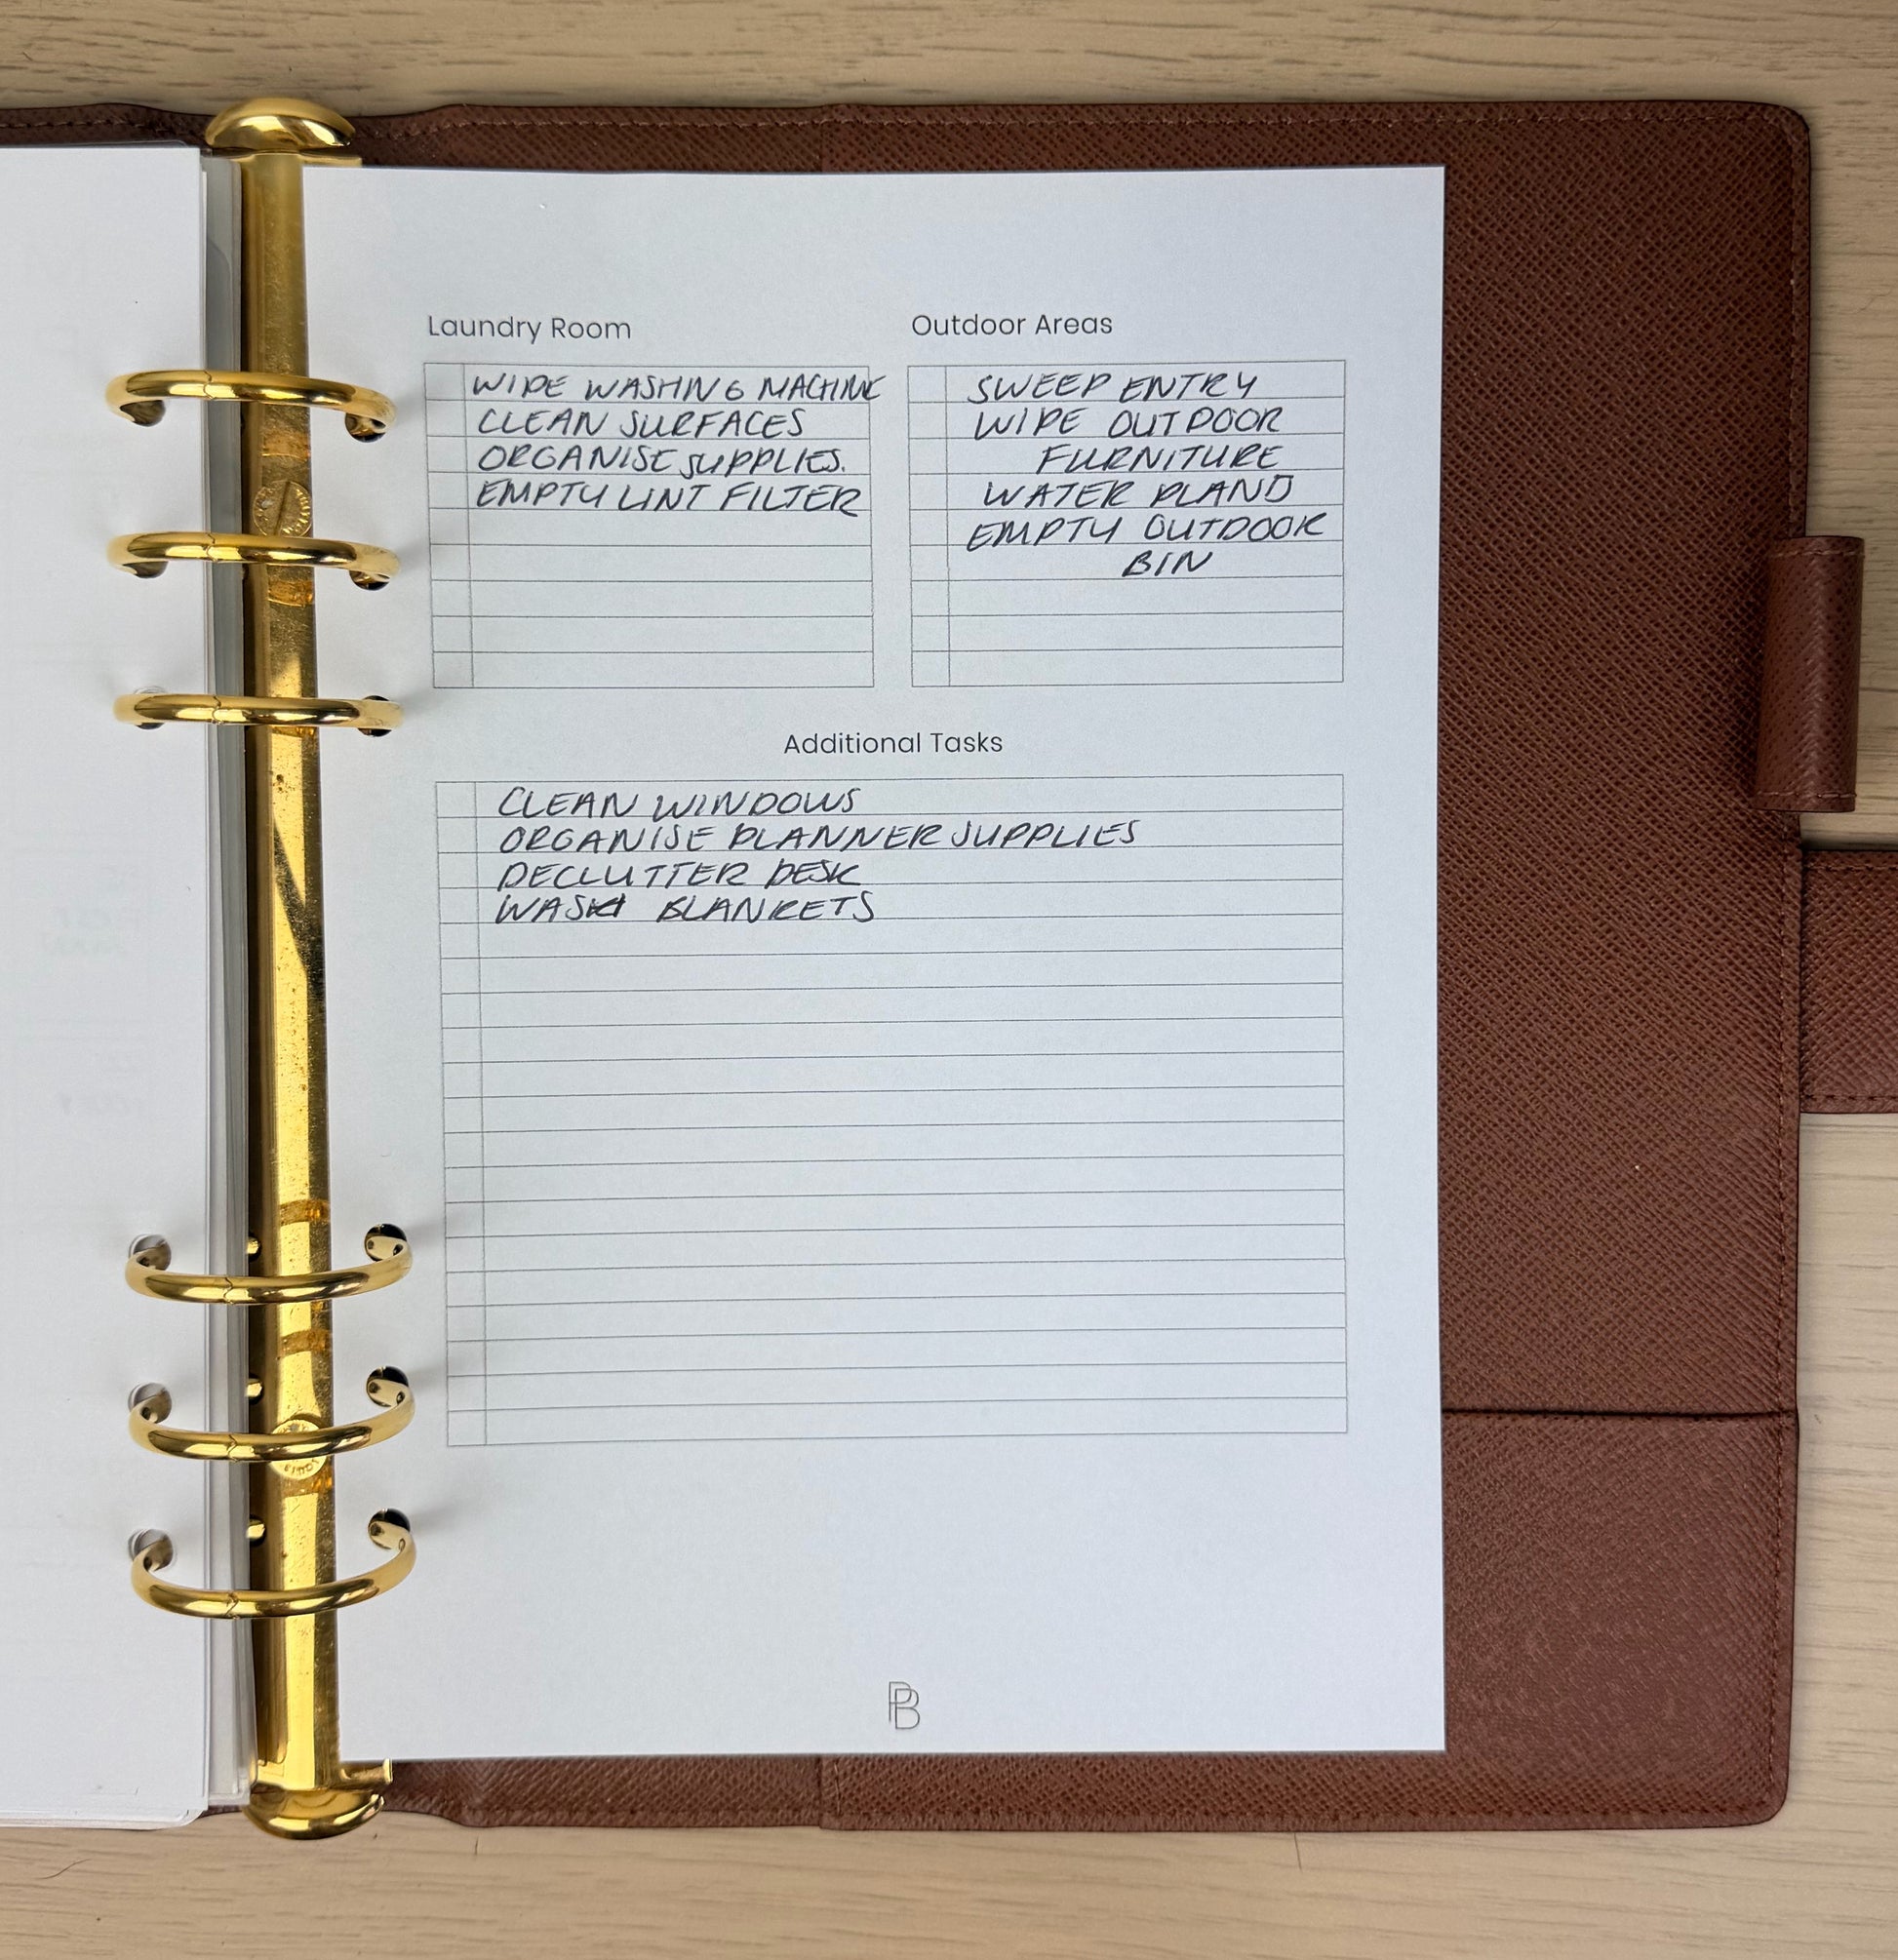 Laundry Room
WIPE WASHING MACHINE
CLEAN SURFACES
ORGANISE SUPPLIES.
EMPTY LINT FILTER
Outdoor Areas
SWEEP ENTRY
WIPE OUTDOOR
FURNITURE
WATER
EMPTY OUTDOOR
BIN
Additional Tasks
CLEAN WINDOWS
ORGANISE PLANNER SUPPLIES
DECLUTTER DESK
WASH BLANKETS
PB